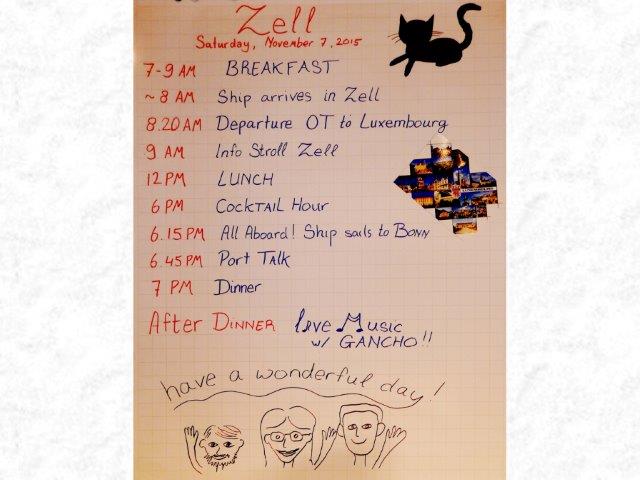 Zell
Saturday, November 7, 2015
7-9 AM BREAKFAST
~ 8 AM Ship arrives in Zell
8.20 AM Departure OT to Luxembourg
9 AM Info Stroll Zell
12 PM LUNCH
6 PM COCKTAIL HOUR
6.15 PM All Aboard! Ship sails to BONN
6.45 PM PORT TALK
7 PM Dinner
AFTER DINNER live Music
w/ GANCHO!!
have a wonderful day!